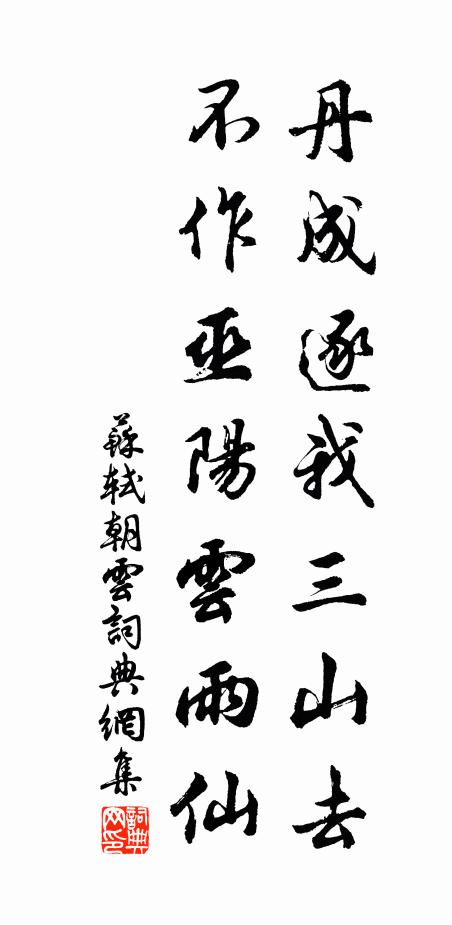 丹成逐我三山去
不作巫陽雲雨仙
蘇軾朝雲詞典網集
詞典网印